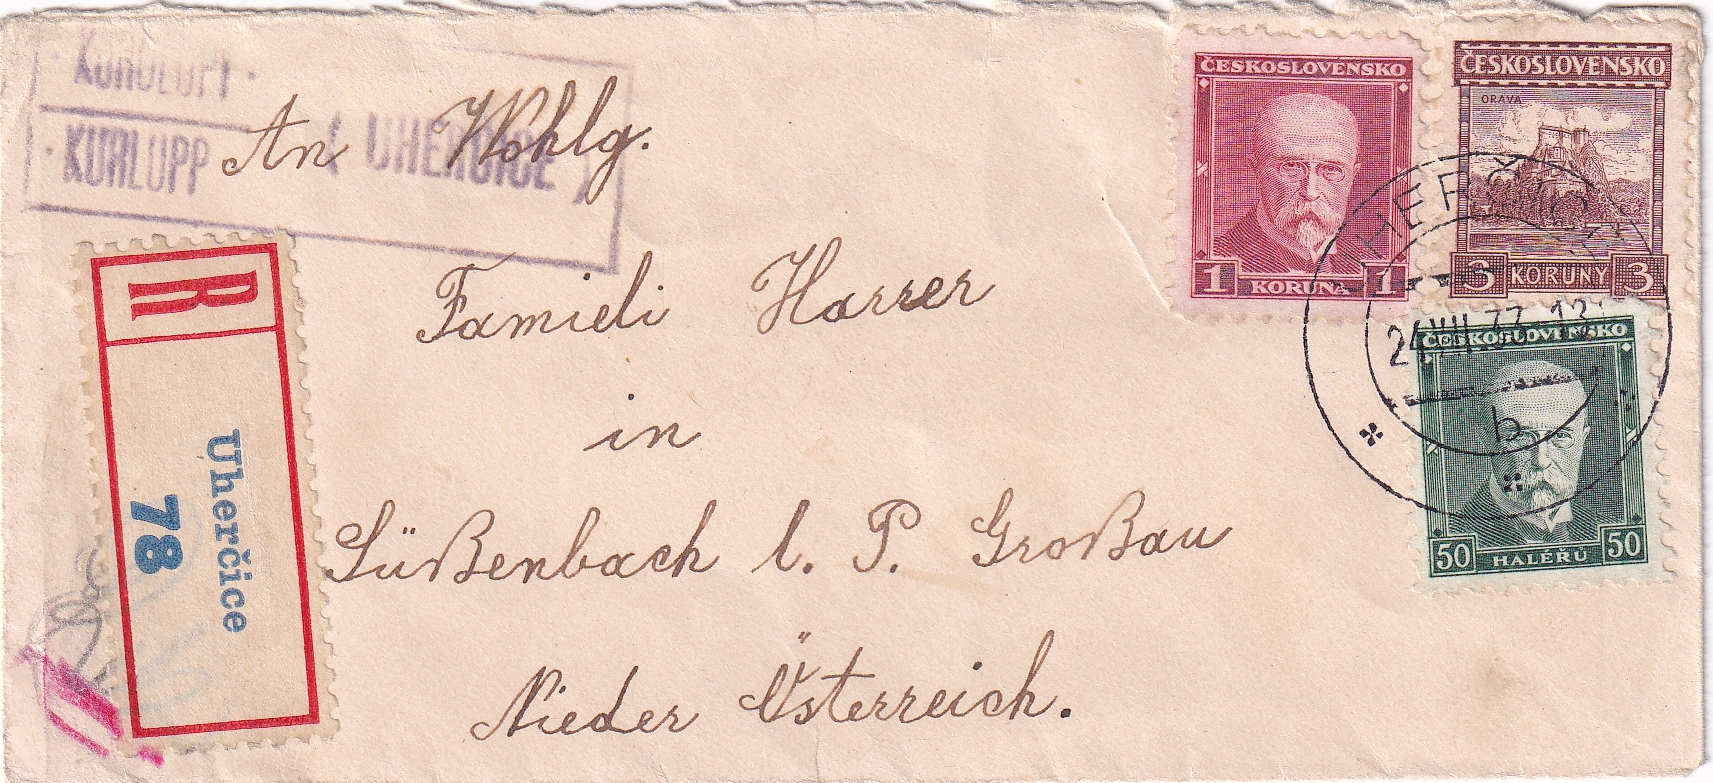 KURLUPP
( UHERČICE )
An Wohlg.
Famieli Harrer
in
Süßenbach l. P. Großau
Nieder Österreich.
R
Uherčice
78
ČESKOSLOVENSKO
1 KORUNA 1
ČESKOSLOVENSKO
ORAVA
3 KORUNY 3
UHERČICE
24.VIII.33.13
b
ČESKOSLOVENSKO
50 HALÉŘŮ 50